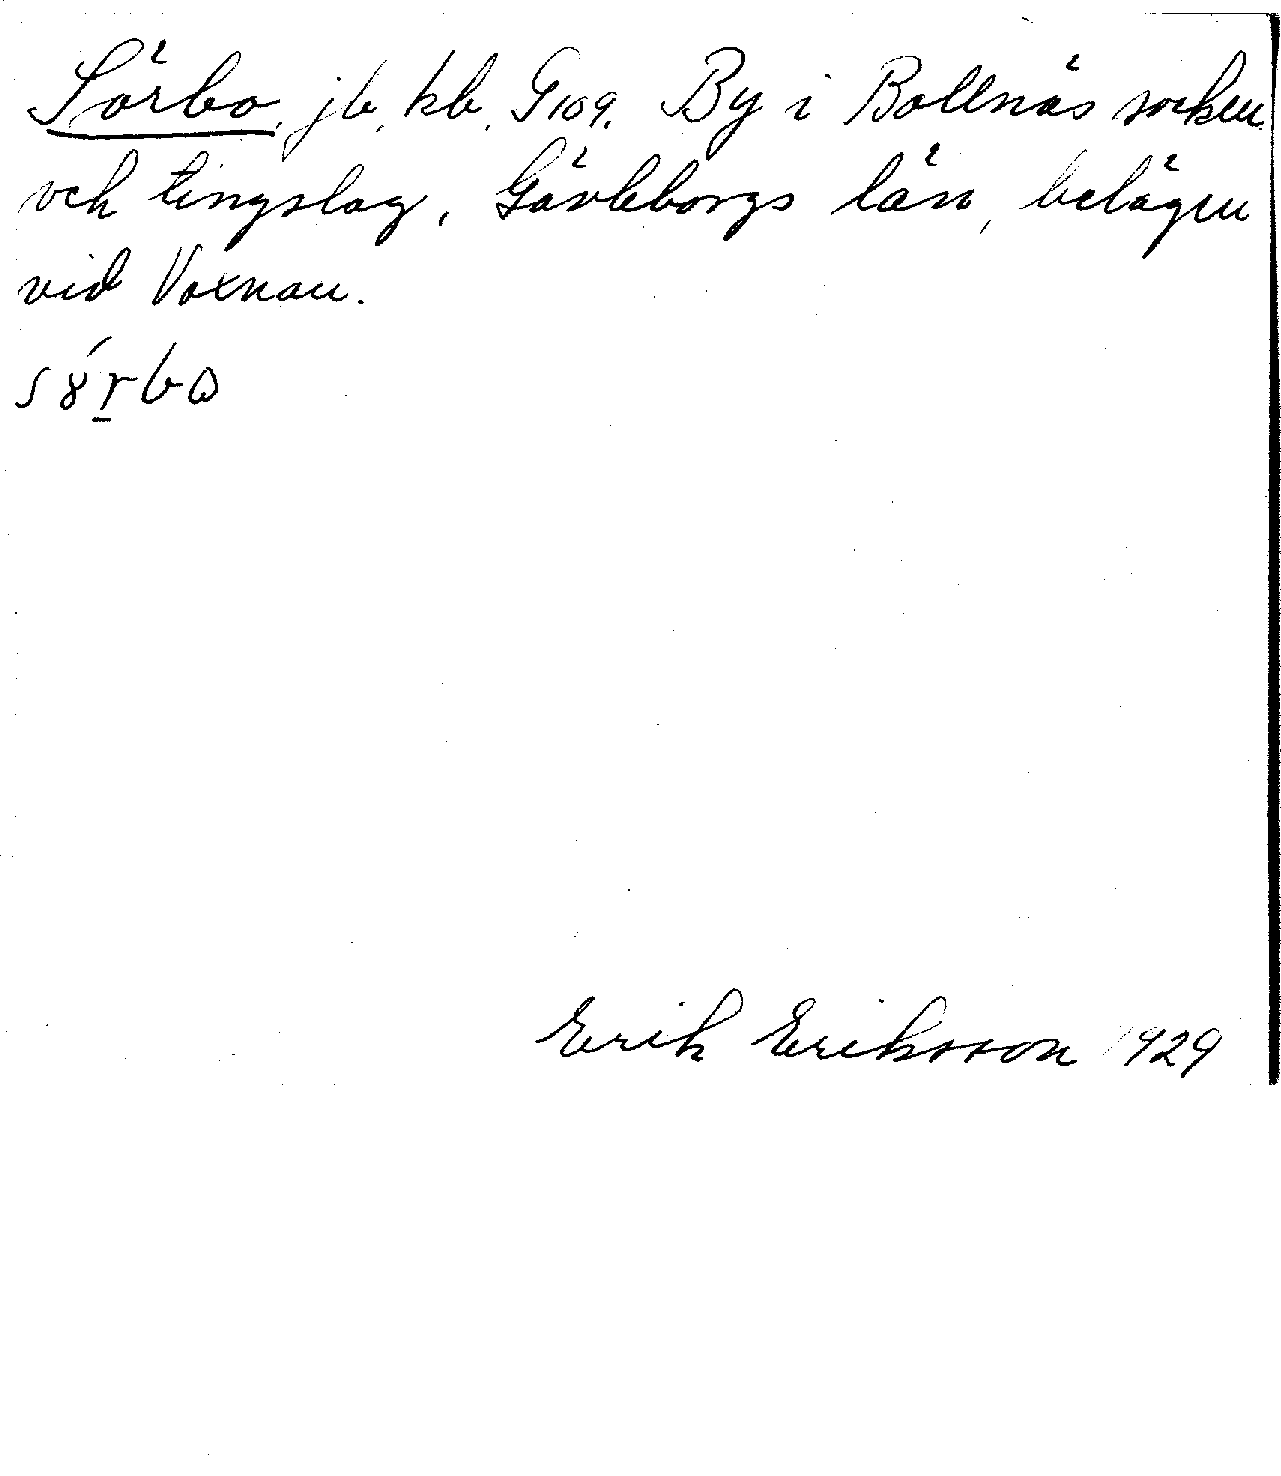 Sörbo, jb, kb, G109. By i Bollnäs socken
och tingslag, Gävleborgs län, belägen
vid Voxnan.
Erik Eriksson 1929